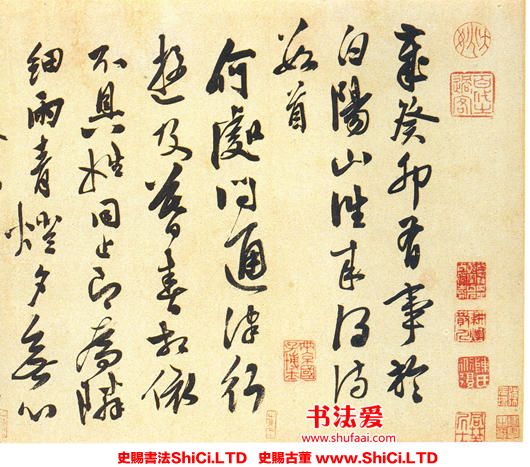 歲癸卯有事於
白陽山往來得詩
數首
何處問通津行
遊及暮春相依
不具姓同止即為隣
細雨青燈夕無心
书法爱
www.shufaai.com
史賜書法ShiCi.LTD 史賜古董 www.SHiCi.LTD